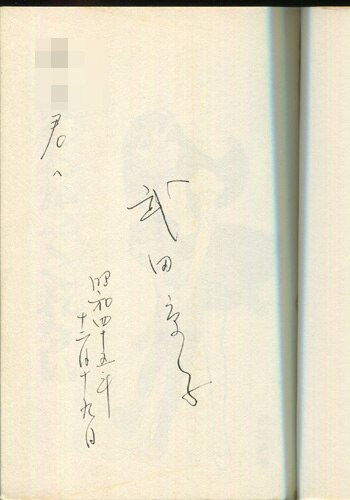 武田京子
昭和四十五年
十二月十九日
君へ